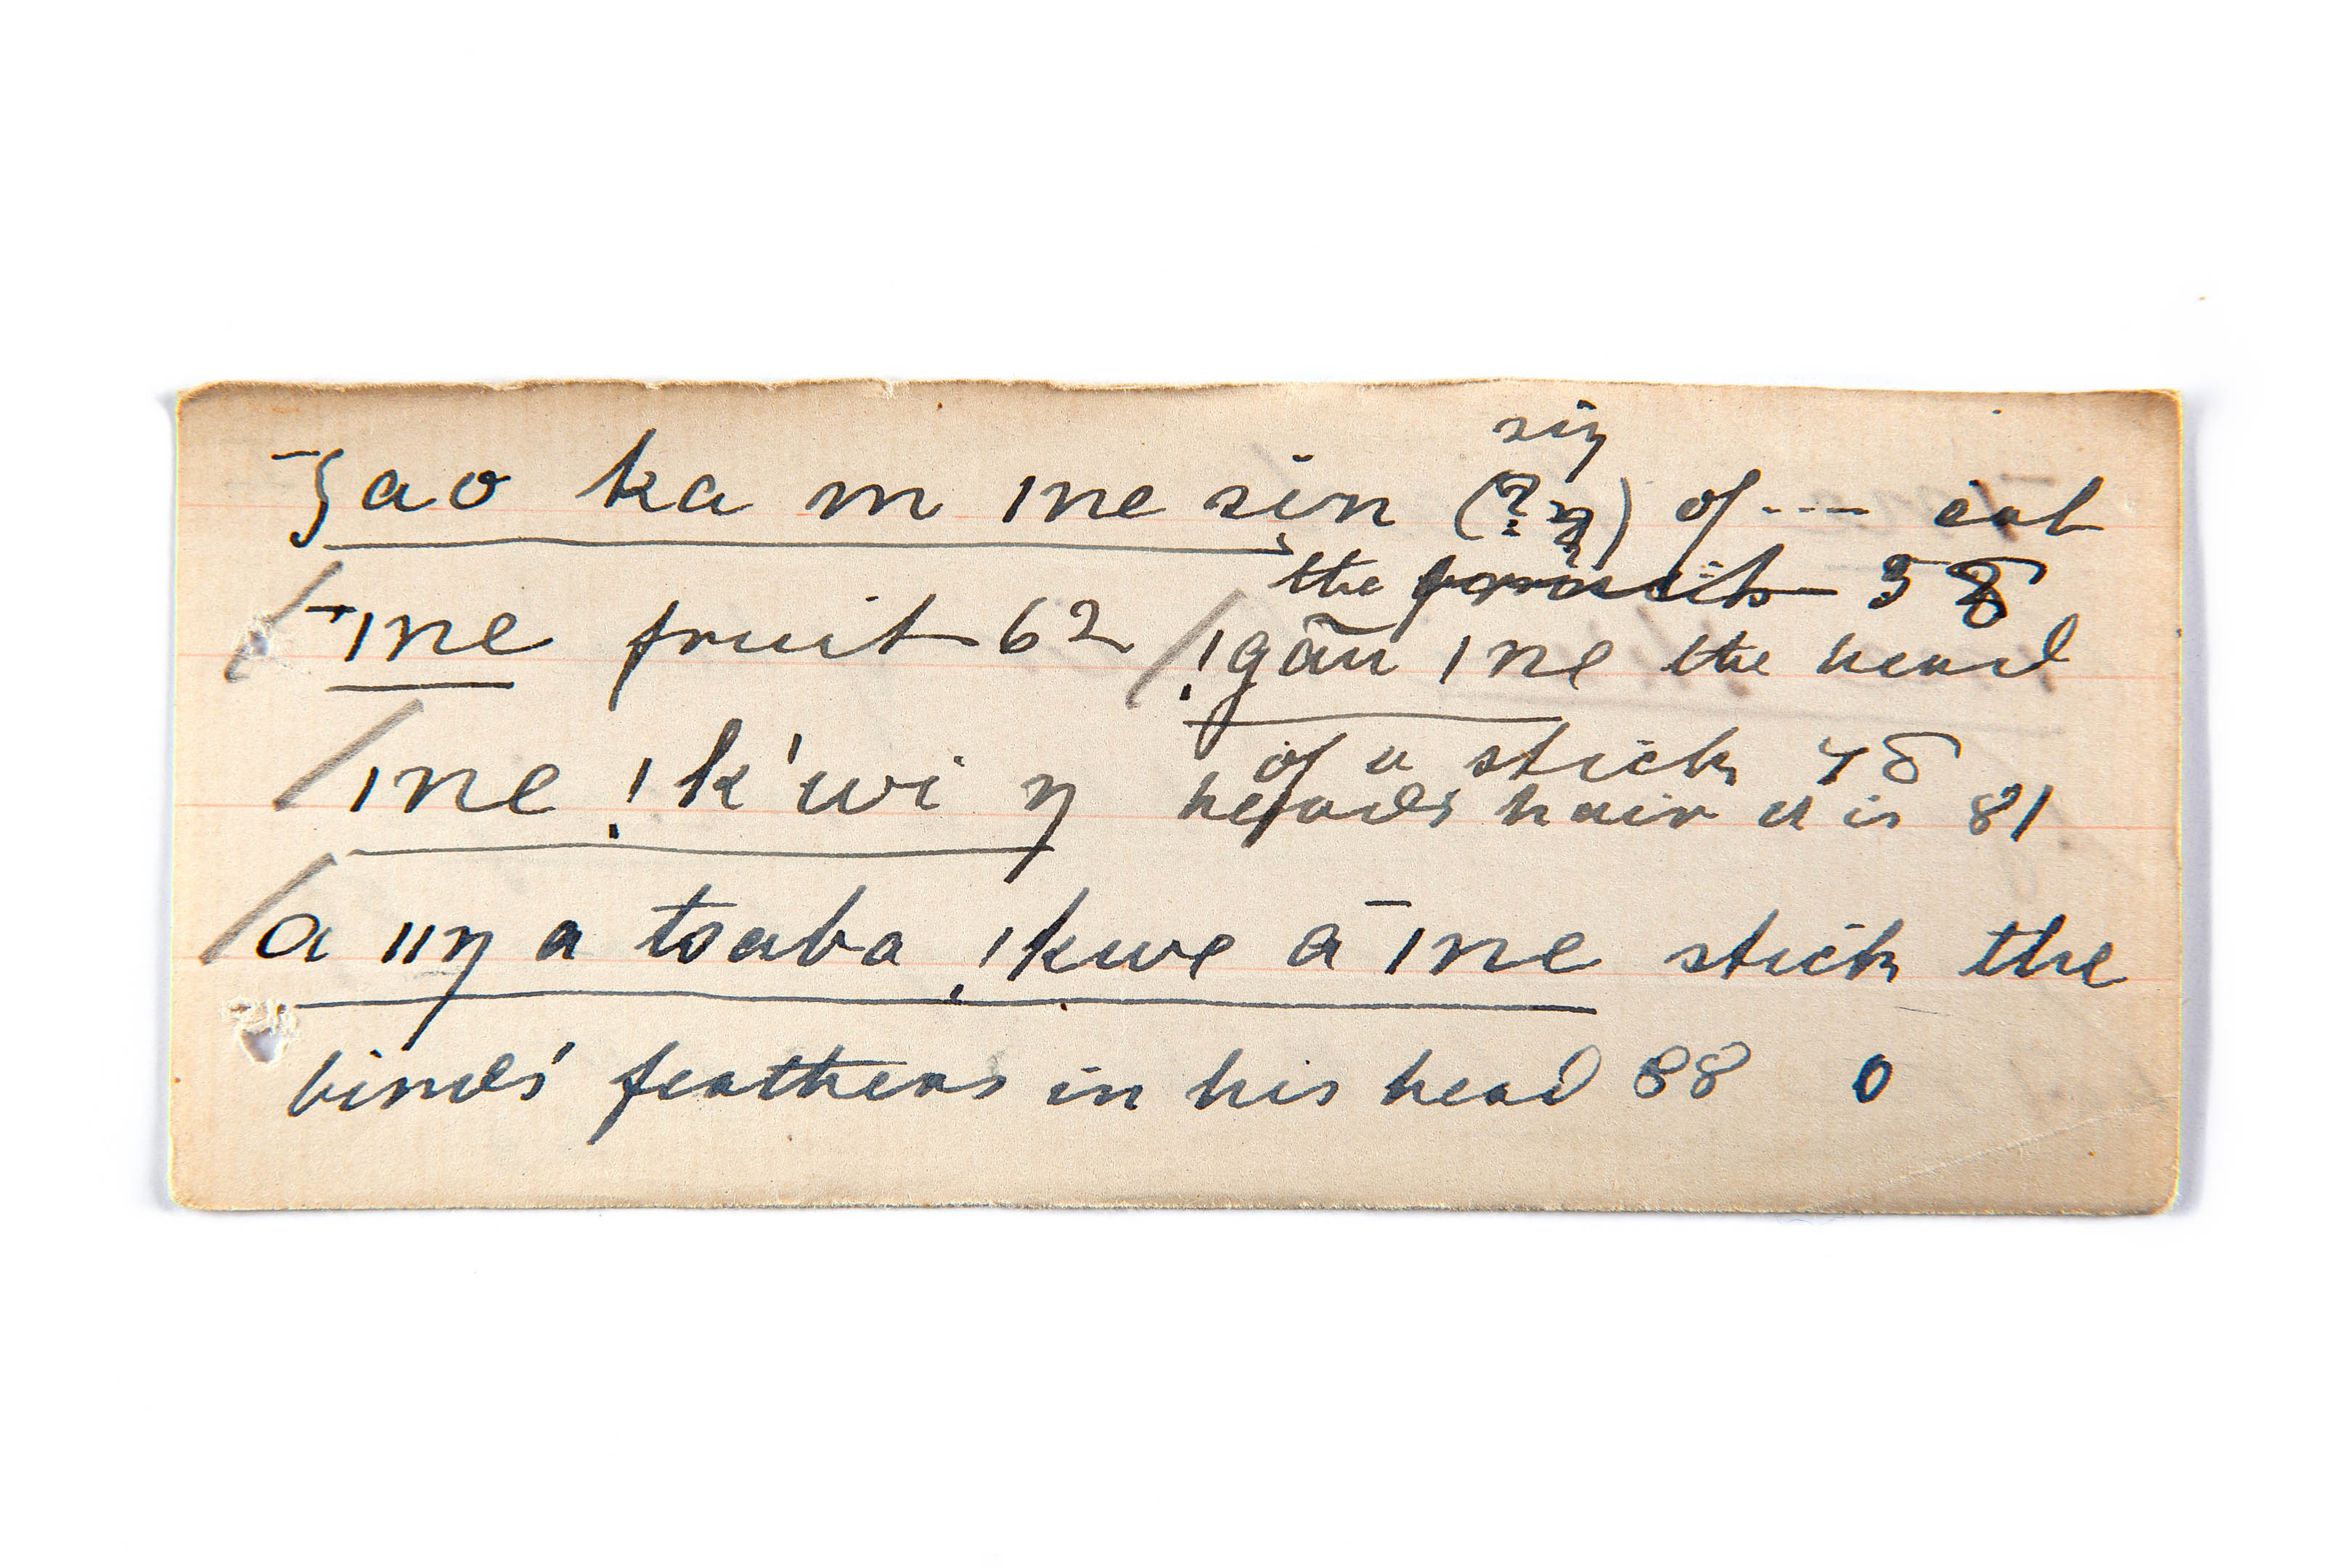 siŋ
ʒao ka m ǀne sin (? ŋ) of ---- eat
the 58
ǀne fruit 62 !gãu ǀne the head
of a stick 48
ǀne !k'wi ŋ heads hair it is 81
a ǁŋ a tsaba !kwe ā ǀne stick the
birds' feathers in his head 88 0